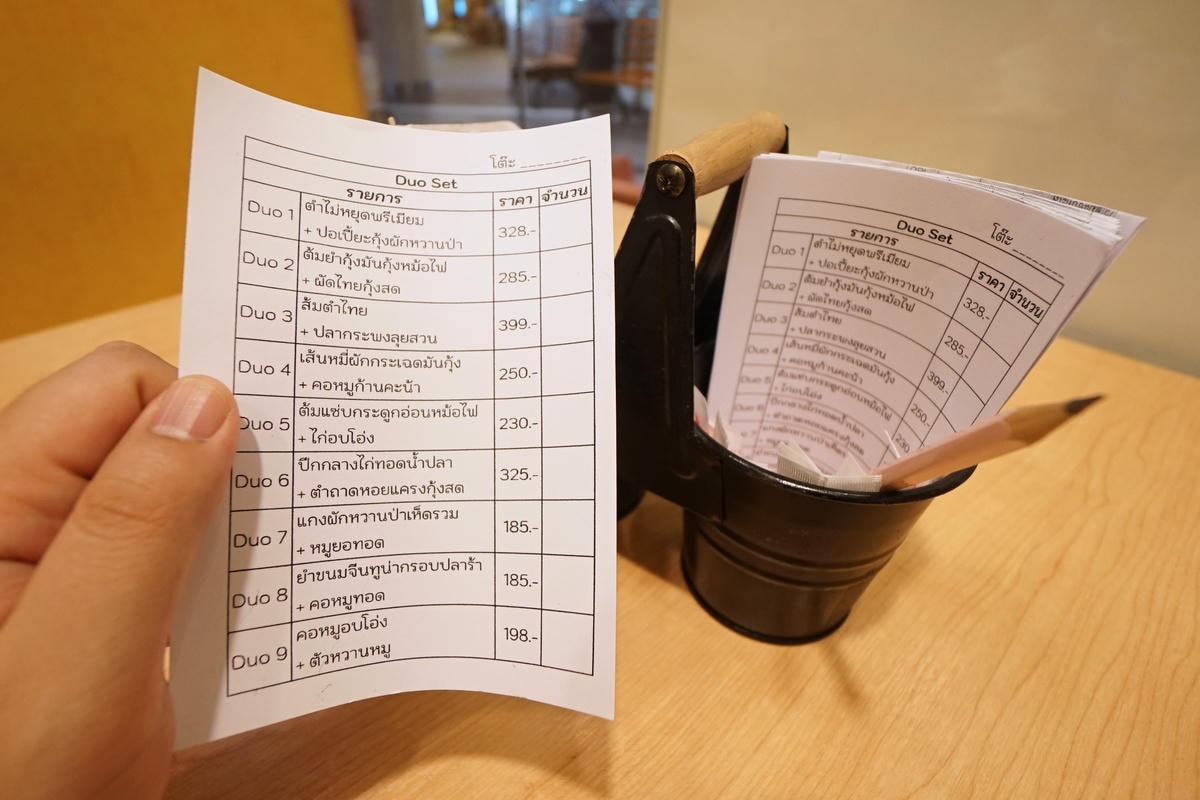 โต๊ะ
Duo Set
รายการ ราคา จำนวน
Duo 1 ตำไม่หยุดพรีเมียม
+ ปอเปี๊ยะกุ้งผักหวานป่า 328.-
Duo 2 ต้มยำกุ้งมันกุ้งหม้อไฟ
+ ผัดไทยกุ้งสด 285.-
Duo 3 ส้มตำไทย
+ ปลากระพงลุยสวน 399.-
Duo 4 เส้นหมี่ผักกระเฉดมันกุ้ง
+ คอหมูก้านคะน้า 250.-
Duo 5 ต้มแซ่บกระดูกอ่อนหม้อไฟ
+ ไก่อบโอ่ง 230.-
Duo 6 ปีกกลางไก่ทอดน้ำปลา
+ ตำถาดหอยแครงกุ้งสด 325.-
Duo 7 แกงผักหวานป่าเห็ดรวม
+ หมูยอทอด 185.-
Duo 8 ยำขนมจีนทูน่ากรอบปลาร้า
+ คอหมูทอด 185.-
Duo 9 คอหมูอบโอ่ง
+ ตัวหวานหมู 198.-
โต๊ะ
Duo Set
รายการ ราคา จำนวน
Duo 1 ตำไม่หยุดพรีเมียม
+ ปอเปี๊ยะกุ้งผักหวานป่า 328.-
Duo 2 ต้มยำกุ้งมันกุ้งหม้อไฟ
+ ผัดไทยกุ้งสด 285.-
Duo 3 ส้มตำไทย
+ ปลากระพงลุยสวน 399.-
Duo 4 เส้นหมี่ผักกระเฉดมันกุ้ง
+ คอหมูก้านคะน้า 250.-
Duo 5 ต้มแซ่บกระดูกอ่อนหม้อไฟ
+ ไก่อบโอ่ง 230
Duo 6 ปีกกลางไก่ทอดน้ำปลา
+ ตำถาดหอยแครงกุ้งสด